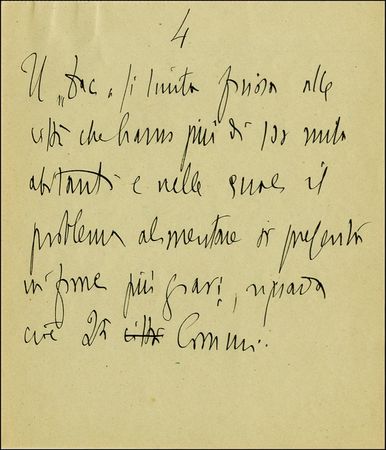 4
Il „fac" si limita finora alle
città che hanno più di 100 mila
abitanti e nelle quali il
problema alimentare si presenta
in forme più gravi, riguarda
cioè 25 città Comuni.